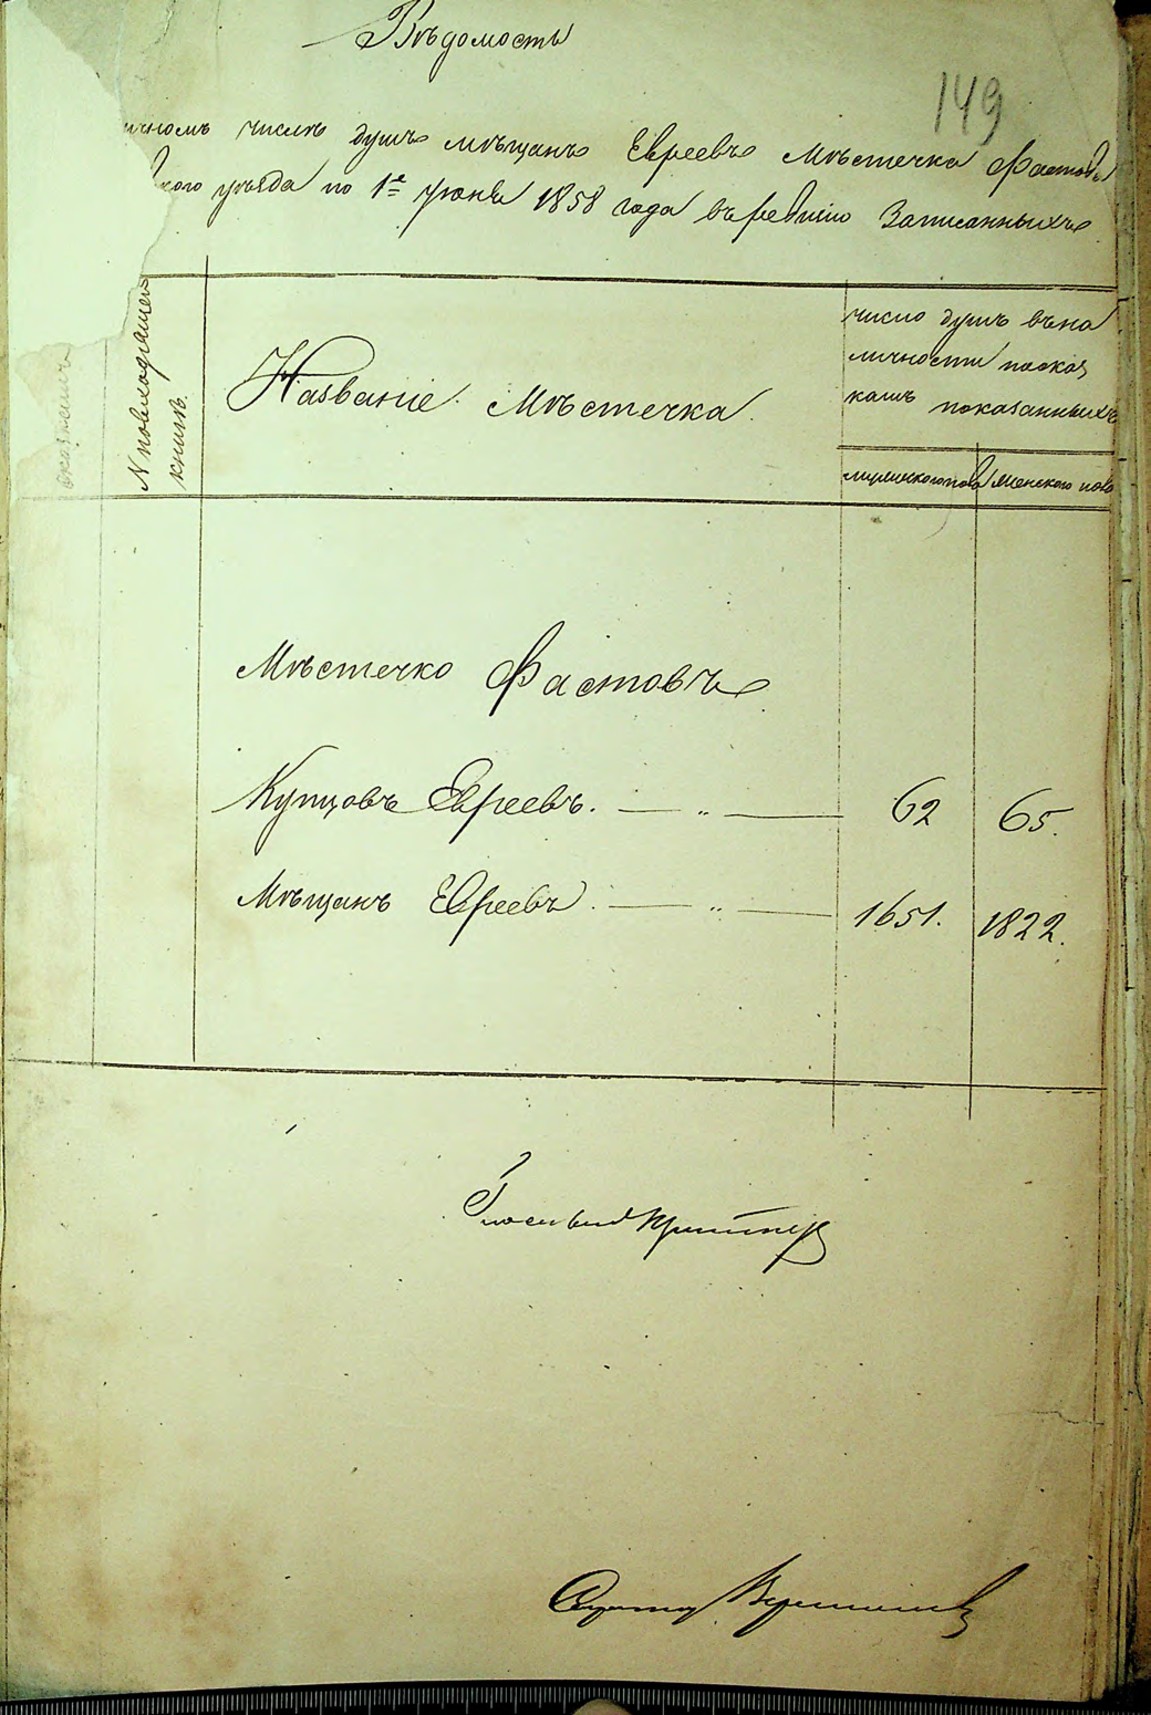 Вѣдомость
149
ичномъ числѣ душъ мѣщанъ Евреевъ Мѣстечка Фастова
кого уѣзда по 1е Іюня 1858 года въ ревизію Записанныхъ
N по владѣющей
книгѣ.
Названіе Мѣстечка.
число душъ въ на
личности по ска
камъ показанныхъ
мужескаго пола
женскаго пола
Мѣстечко Фастовъ
Купцовъ Евреевъ. — „ — 62 65.
Мѣщанъ Евреевъ. — „ — 1651. 1822.